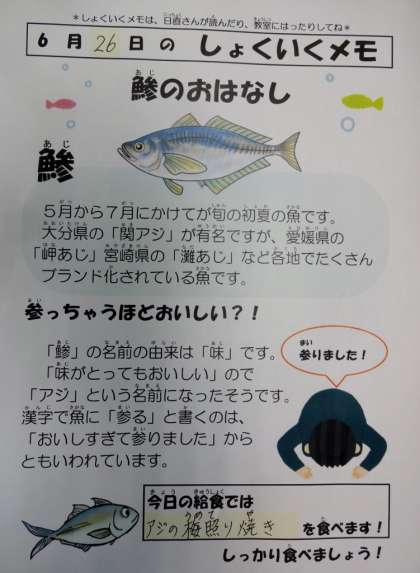 ＊しょくいくメモは、日直さんが読んだり、教室にはったりしてね＊
6月26日の しょくいくメモ
鯵のおはなし
鯵
5月から7月にかけてが旬の初夏の魚です。
大分県の「関アジ」が有名ですが、愛媛県の
「岬あじ」宮崎県の「灘あじ」など各地でたくさん
ブランド化されている魚です。
参っちゃうほどおいしい？！
「鯵」の名前の由来は「味」です。
「味がとってもおいしい」ので
「アジ」という名前になったそうです。
漢字で魚に「参る」と書くのは、
「おいしすぎて参りました」から
ともいわれています。
参りました！
今日の給食では
アジの梅照り焼き を食べます！
しっかり食べましょう！